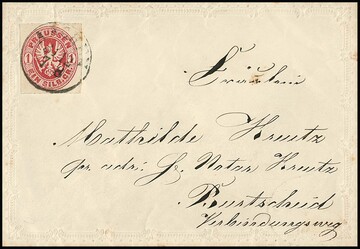 PREUSSEN
1 1
EIN SILB. GR.
Fräulein
Mathilde Kreutz
pr. adr: H. Notar Kreutz
Burtscheid
Verbindungsweg